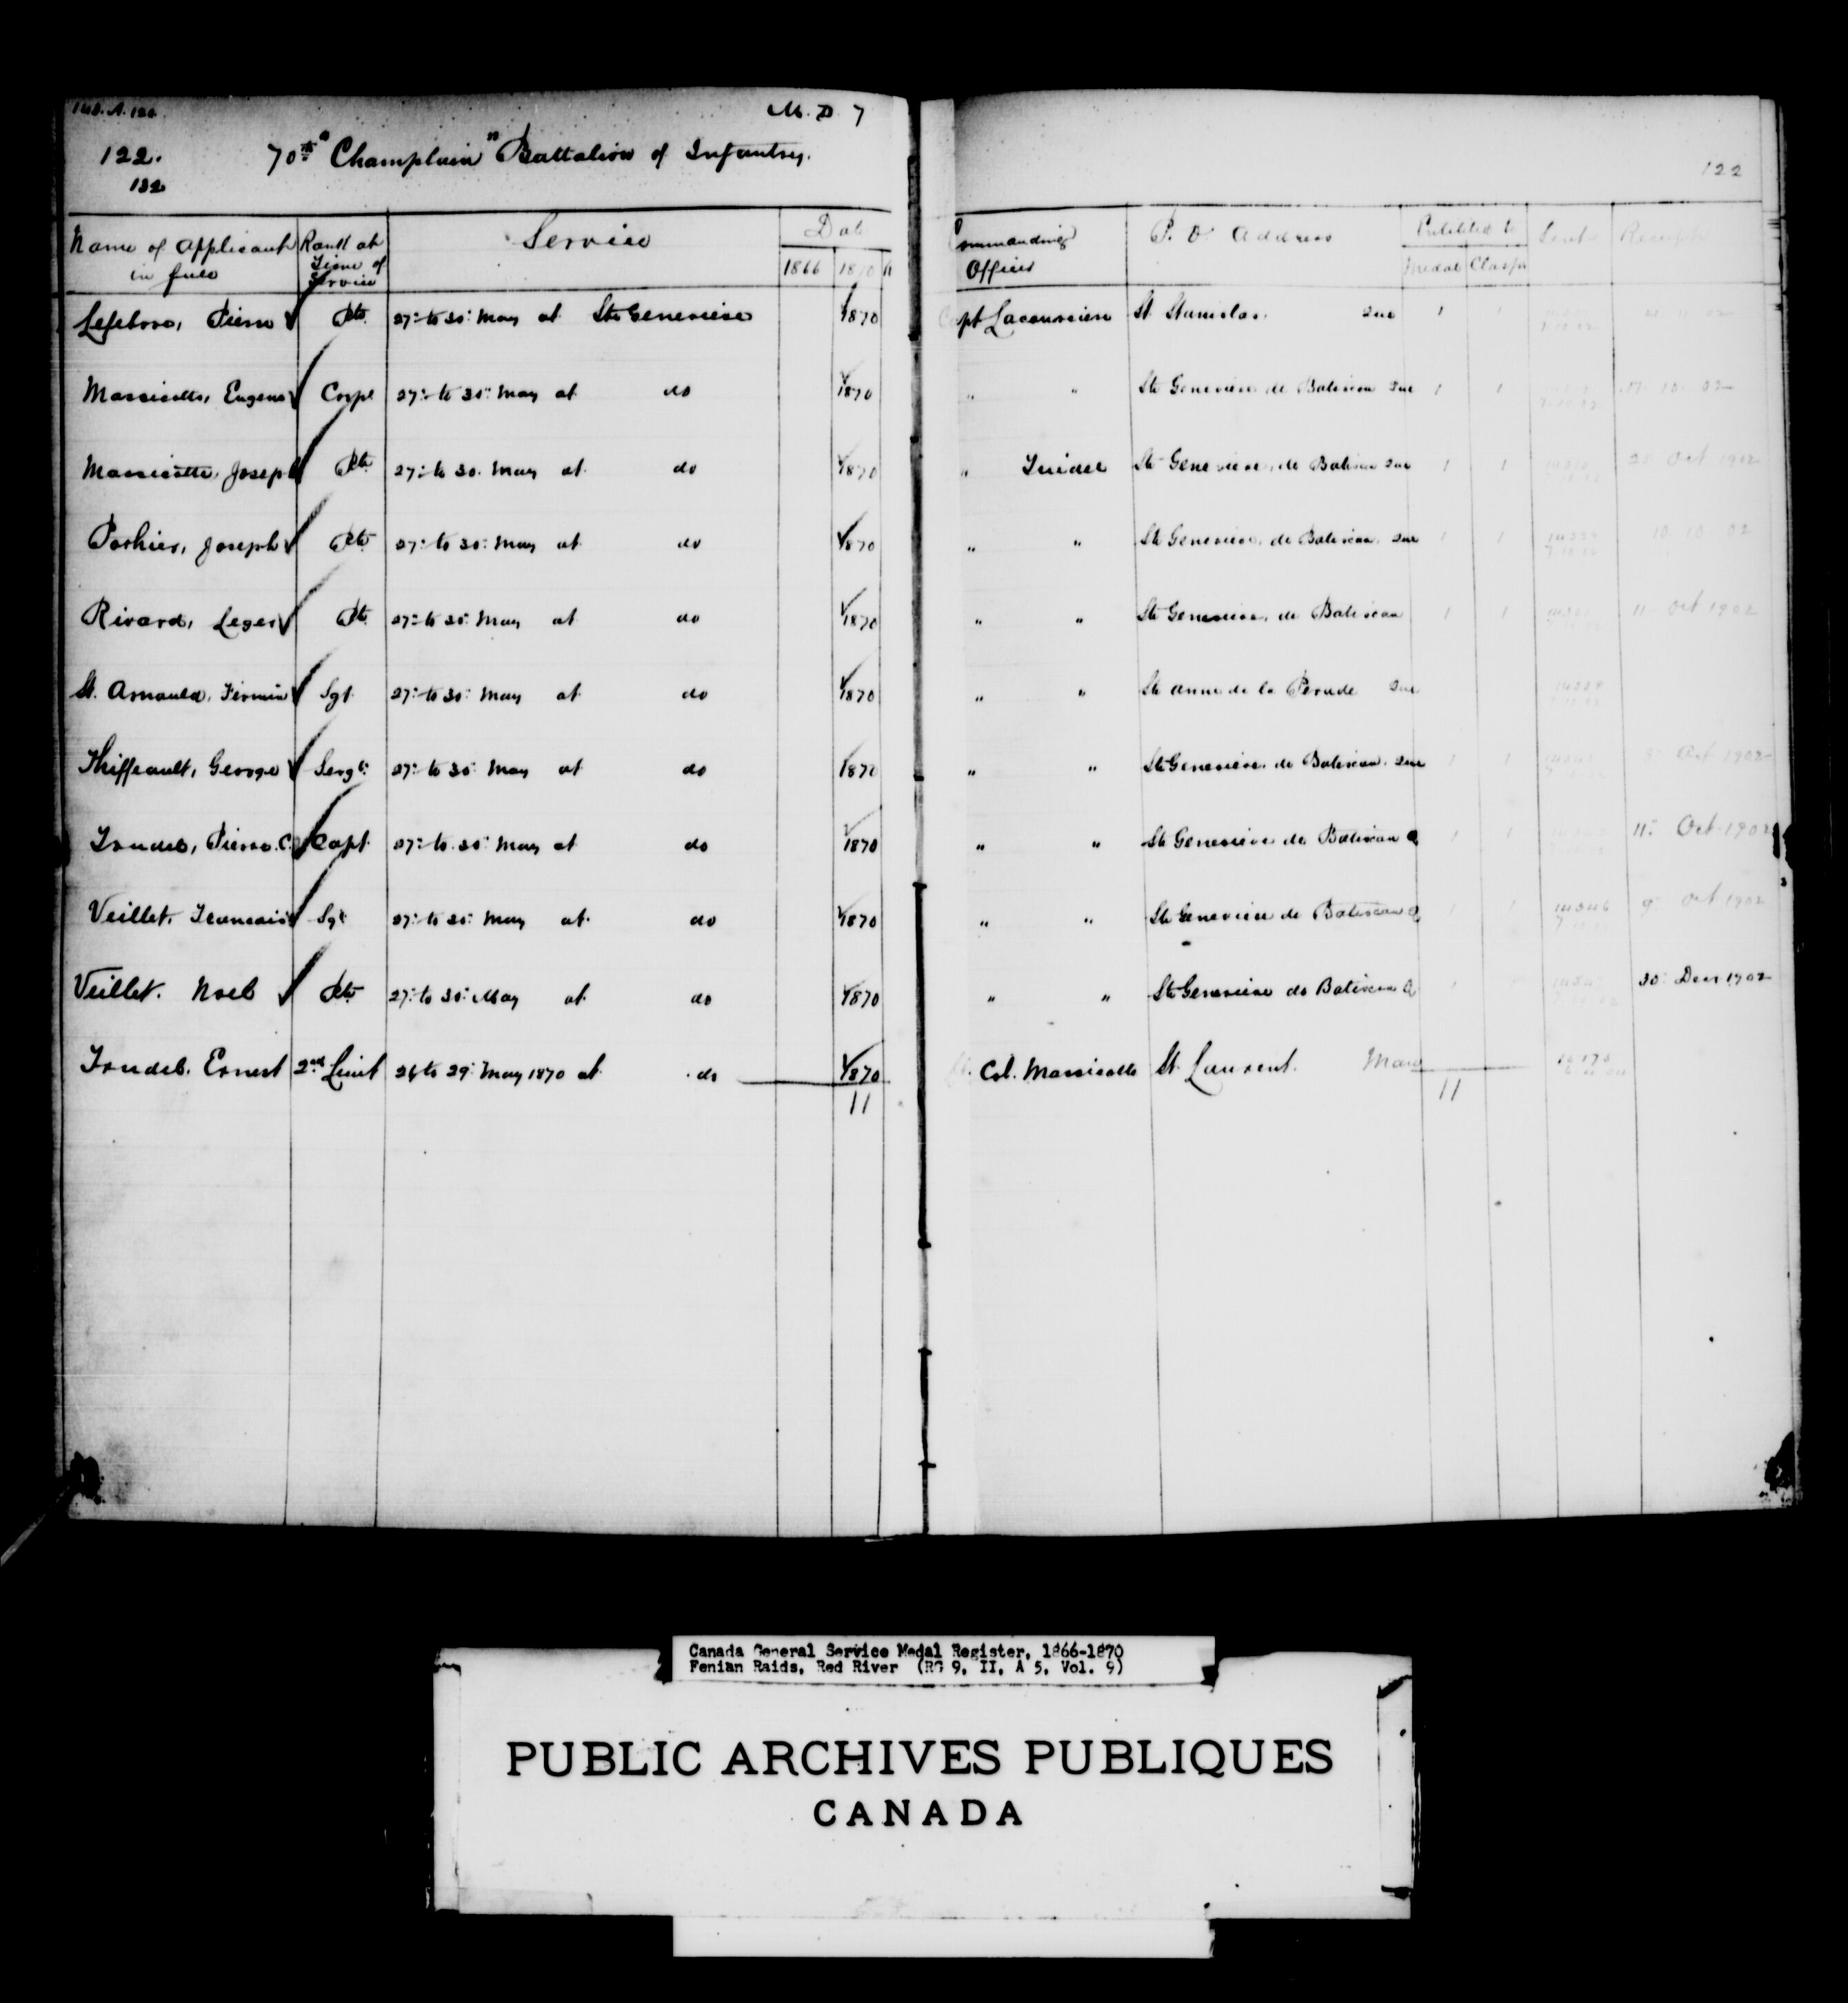 M. D 7
122.
70th "Champlain" Battalion of Infantry.
132
122
Name of applicant in full
Rank at Time of Service
Service
Date
1866 1870
Commanding Officer
P. O. Address
Entitled to
Medal Clasps
Sent
Receipt
Lefebvre, Pierre Pte 27 to 30 May at Ste Genevieve 1870 Capt Lacoursiere St Stanislas, Que 1 1
Massicotte, Eugene Corpl 27 to 30 May at do 1870 " " Ste Genevieve de Batiscan Que 1 1 17 10 02
Massicotte, Joseph Pte 27 to 30 May at do 1870 " Trudel Ste Genevieve de Batiscan Que 1 1 Oct 1902
Joseph Pte 27 to 30 May at do 1870 " " Ste Genevieve de Batiscan Que 1 1 10 10 02
Rivard, Leger Pte 27 to 30 May at do 1870 " " Ste Genevieve de Batiscan 1 1 11 Oct 1902
St. Arnauld, Firmin Sgt 27 to 30 May at do 1870 " " Ste Anne de la Perade Que
Thiffeault, George Sergt 27 to 30 May at do 1870 " " Ste Genevieve de Batiscan Que 1 1 1902
Trudel, Pierre C. Capt 27 to 30 May at do 1870 " " Ste Genevieve de Batiscan Q 1 1 11 Oct 1902
Veillet, Francois Sgt 27 to 30 May at do 1870 " " Ste Genevieve de Batiscan Q 1 1 9 Oct 1902
Veillet. Noel Pte 27 to 30 May at do 1870 " " Ste Genevieve de Batiscan Q 30 Dec 1902
Trudel. Ernest 2nd Lieut 26 to 29 May 1870 at do 1870 Col. Massicotte St. Laurent. Man
11 11
Canada General Service Medal Register, 1866-1870
Fenian Raids, Red River (RG 9, II, A 5, Vol. 9)
PUBLIC ARCHIVES PUBLIQUES
CANADA